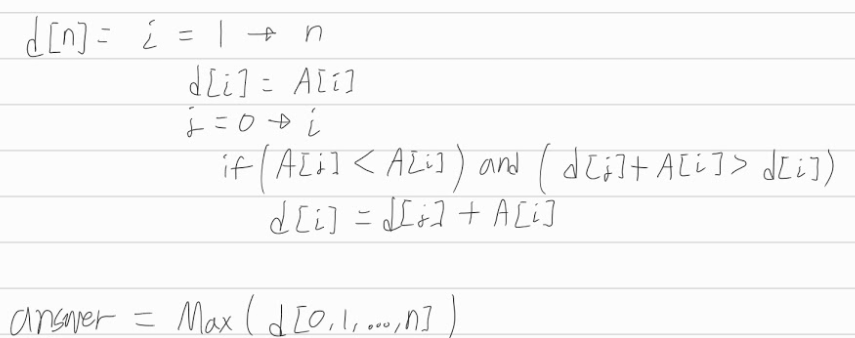 d[n] = i = 1 → n
d[i] = A[i]
j = 0 → i
if (A[j] < A[i]) and (d[j] + A[i] > d[i])
d[i] = d[j] + A[i]
answer = Max(d[0,1,...,n])